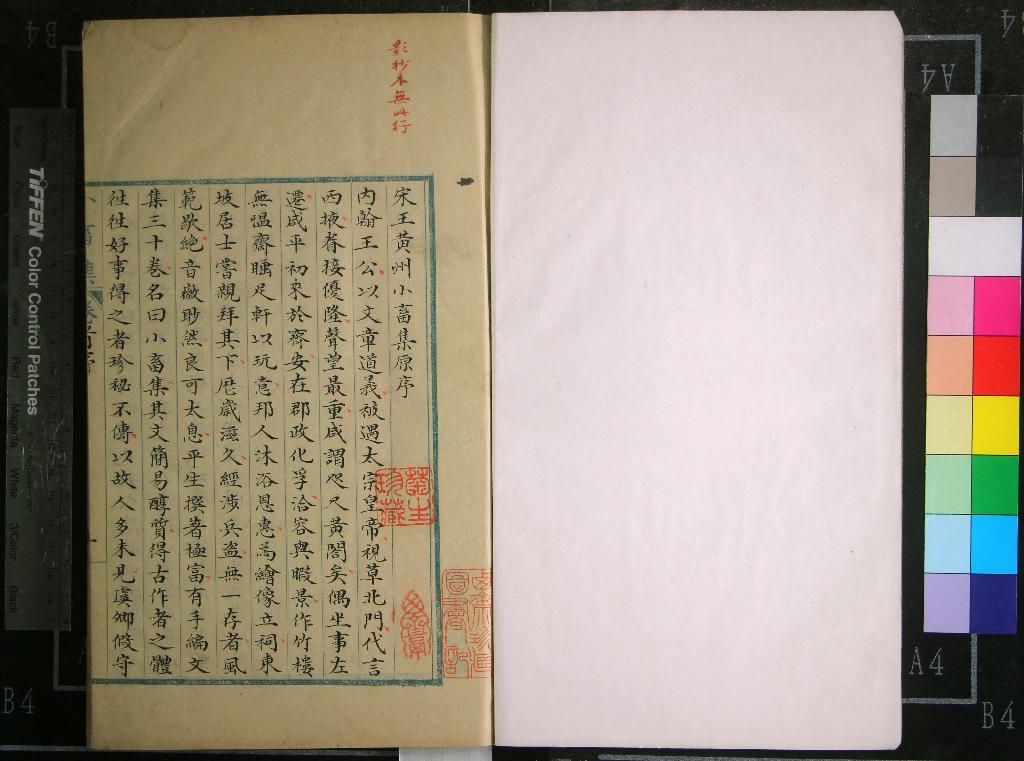 影抄本無此行
宋王黃州小畜集原序
內翰王公以文章道義被遇太宗皇帝視草北門代言
西掖眷接優隆聲望最重咸謂咫尺黃閣矣偶坐事左
遷咸平初來於齊安在郡政化孚洽容與暇景作竹樓
無慍齋睡足軒以玩意邦人沐浴恩惠為繪像立祠東
坡居士嘗親拜其下歷歲滋久經涉兵盜無一存者風
範歇絕音徽眇然良可太息平生撰著極富有手編文
集三十卷名曰小畜集其文簡易醇質得古作者之體
往往好事得之者珍秘不傳以故人多未見虞卿假守
TIFFEN Color Control Patches
Blue
Cyan
Green
Yellow
Red
Magenta
White
3/Color
Black
A4
A4
B4
B4
B4